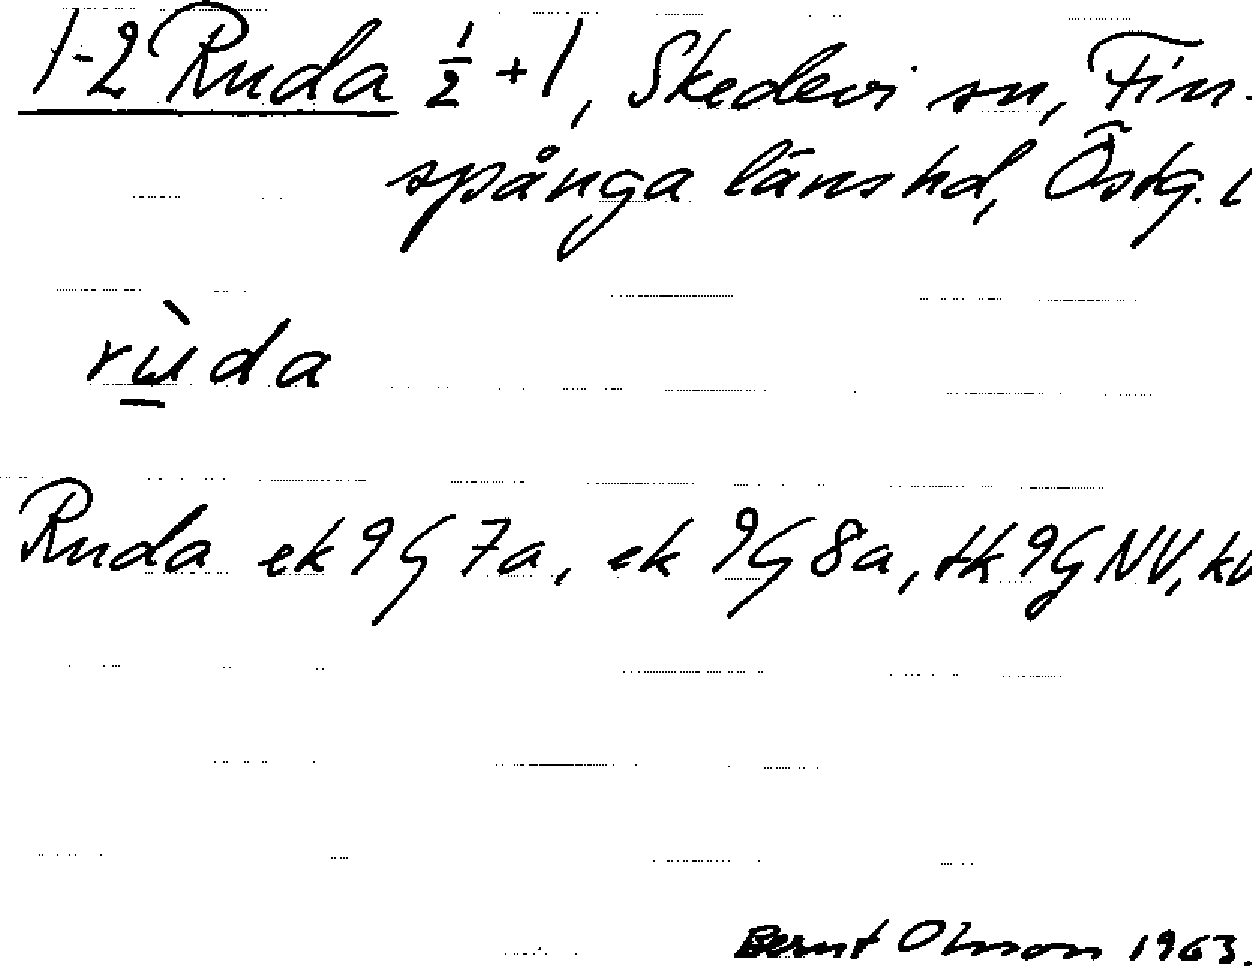 1-2 Ruda ½ + 1, Skedevi sn, Fin-
spånga länshd, Östg. l
rùda
Ruda ek 9G 7a, ek 9G 8a, tk 9G NV, kv
Bernt Olsson 1963.